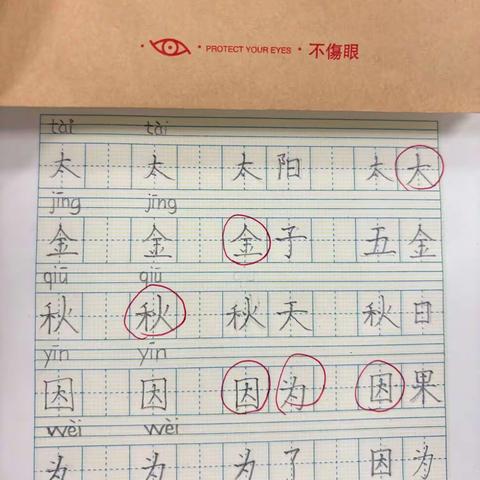 PROTECT YOUR EYES · 不傷眼
tài tài
太 太 太阳 太大
jīng jīng
金 金 金子 五金
qiū qiū
秋 秋 秋天 秋日
yīn yīn
因 因 因为 因果
wèi wèi
为 为 为了 因为